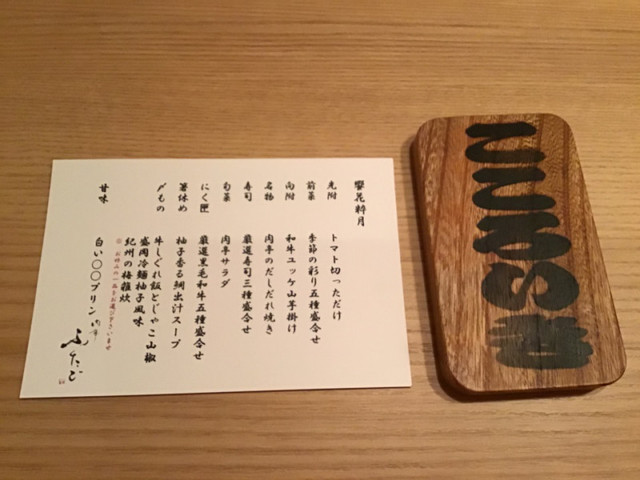 櫻花料月
先附 トマト切っただけ
前菜 季節の彩り五種盛合せ
向附 和牛ユッケ山芋掛け
名物 肉亭のだしだれ焼き
寿司 厳選寿司三種盛合せ
旬菜 肉亭サラダ
にく匠 厳選黒毛和牛五種盛合せ
箸休め 柚子香る鯛出汁スープ
〆もの 牛しぐれ飯とじゃこ山椒
盛岡冷麺柚子風味
紀州の梅雑炊
お好みの一品をお選び下さいませ
甘味 白い〇〇プリン
肉亭
ふたご